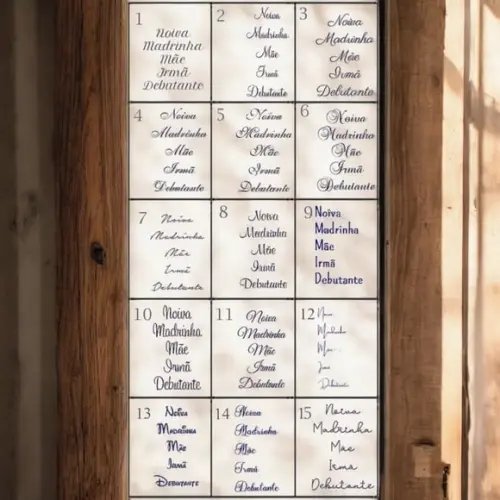 1
Noiva
Madrinha
Mãe
Irmã
Debutante
2
Noiva
Madrinha
Mãe
Irmã
Debutante
3
Noiva
Madrinha
Mãe
Irmã
Debutante
4
Noiva
Madrinha
Mãe
Irmã
Debutante
5
Noiva
Madrinha
Mãe
Irmã
Debutante
6
Noiva
Madrinha
Mãe
Irmã
Debutante
7
Noiva
Madrinha
Mãe
Irmã
Debutante
8
Noiva
Madrinha
Mãe
Irmã
Debutante
9
Noiva
Madrinha
Mãe
Irmã
Debutante
10
Noiva
Madrinha
Mãe
Irmã
Debutante
11
Noiva
Madrinha
Mãe
Irmã
Debutante
12
Noiva
Madrinha
Mãe
Irmã
Debutante
13
Noiva
Madrinha
Mãe
Irmã
Debutante
14
Noiva
Madrinha
Mãe
Irmã
Debutante
15
Noiva
Madrinha
Mãe
Irmã
Debutante